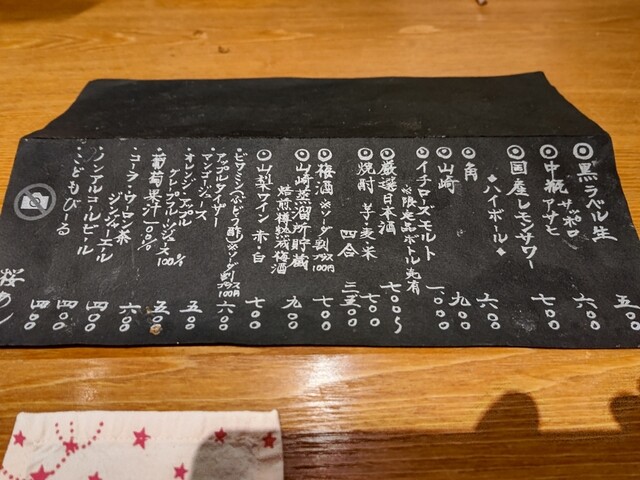 ◎黒ラベル生 五〇〇
◎中瓶 サッポロ アサヒ 六〇〇
◎国産レモンサワー 七〇〇
◆ハイボール◆
◎角 六〇〇
◎山崎 九〇〇
◎イチローズモルト 一、〇〇〇
※限定品ボトル先有
◎厳選日本酒 七〇〇〜
◎焼酎 芋・麦・米 四合 三、五〇〇
◎梅酒 ※ソーダ割プラス100円 七〇〇
◎山崎蒸溜所貯蔵
焙煎樽熟成梅酒 九〇〇
◎山梨ワイン 赤・白 七〇〇
・ビタミン(ぶどう酢)※ソーダ割プラス100円 六〇〇
・アップルタイザー
マンゴージュース
・オレンジ・アップル
グレープフルーツジュース100% 五〇〇
・葡萄果汁100% 五〇〇
・コーラ・ウーロン茶
ジンジャーエール 四〇〇
・ノンアルコールビール
・こどもびーる 四〇〇
桜めし